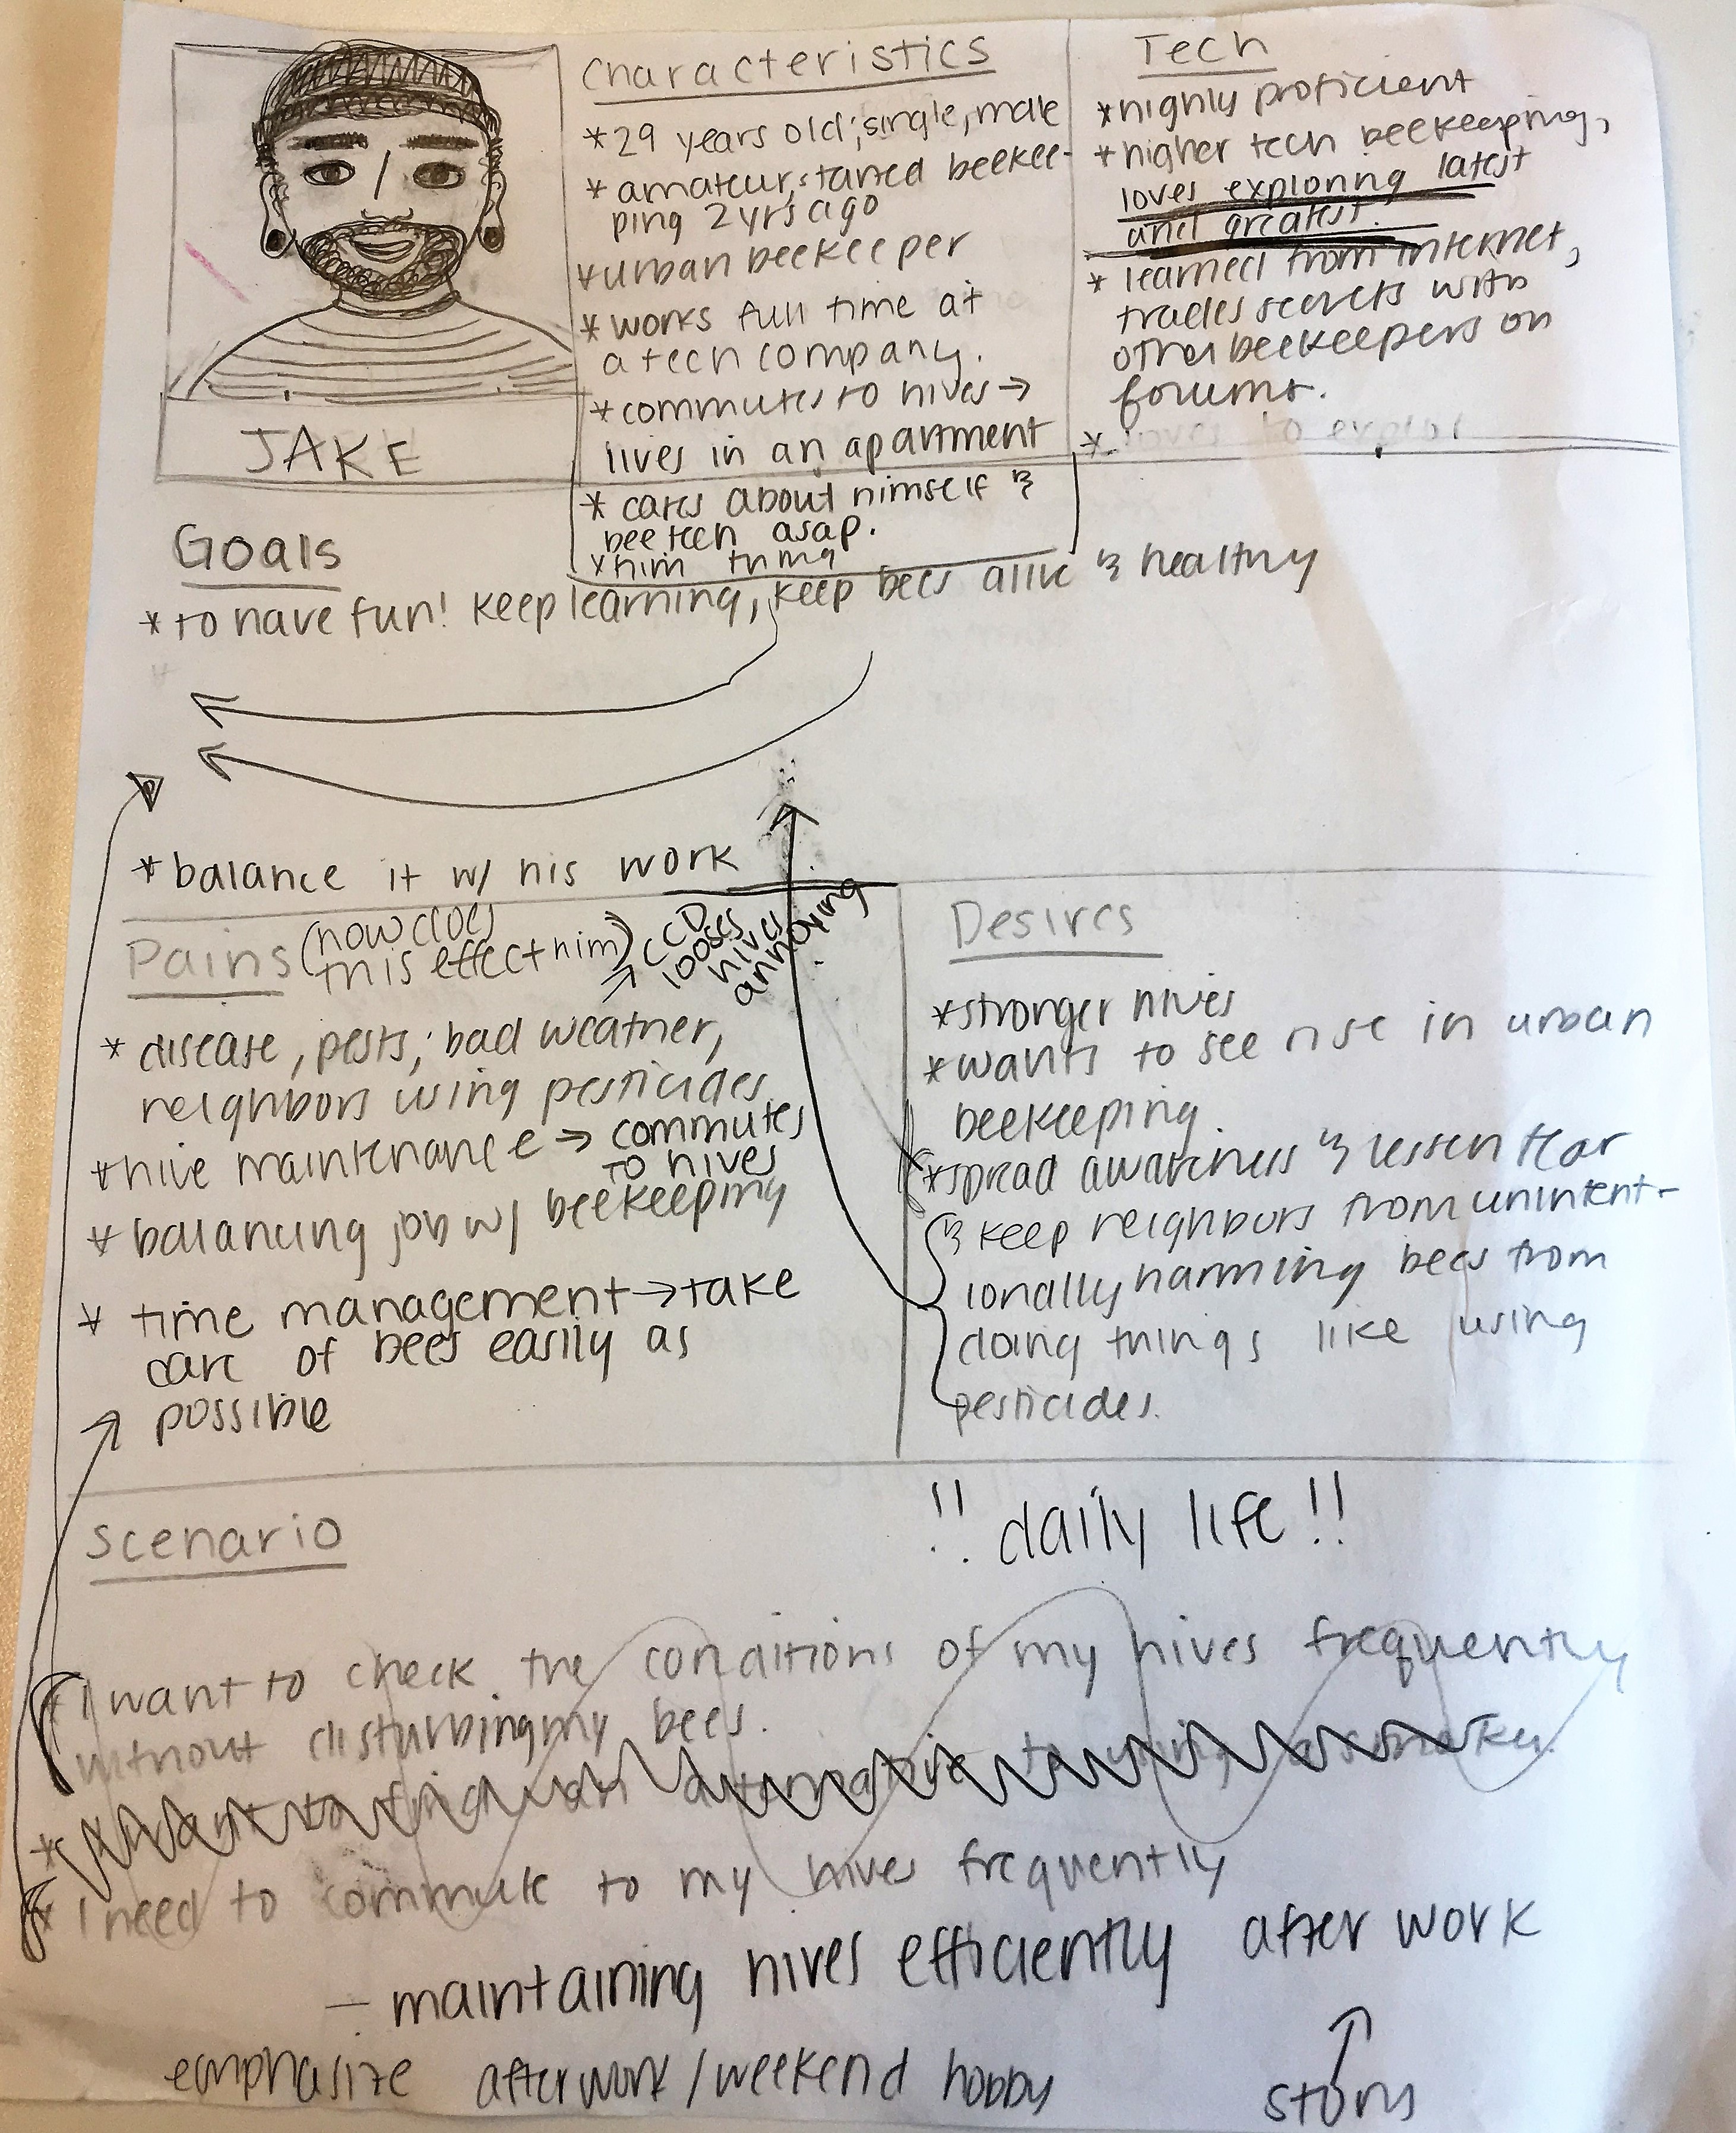 JAKE
Characteristics
*29 years old; single, male
* amateur, started beekee-
ping 2 yrs ago
*urban beekeeper
*works full time at
a tech company.
*commutes to hives →
lives in an apartment
* cares about himself &
bee tech asap.
*him thing
Tech
*highly proficient
*higher tech beekeeping,
loves exploring latest
and greatest.
* learned from internet,
trades secrets with
other beekeepers on
forums.
* loves to explor
Goals
*to have fun! keep learning, keep bees alive & healthy
*balance it w/ his work
Pains (how does
this effect him)
→ CCD
looses
hives
annoying
* disease, pests, bad weather,
neighbors using pesticides
*hive maintenance → commutes
to hives
*balancing job w/ beekeeping
* time management → take
care of bees easily as
possible
Desires
*stronger hives
*wants to see rise in urban
beekeeping
*spread awareness & lessen fear
& keep neighbors from unintent-
ionally harming bees from
doing things like using
pesticides.
Scenario
!! daily life !!
* I want to check the conditions of my hives frequently
without disturbing my bees.
* I want to find an alternative to using a smoker.
* I need to commute to my hives frequently
- maintaining hives efficiently after work
emphasize after work / weekend hobby
story